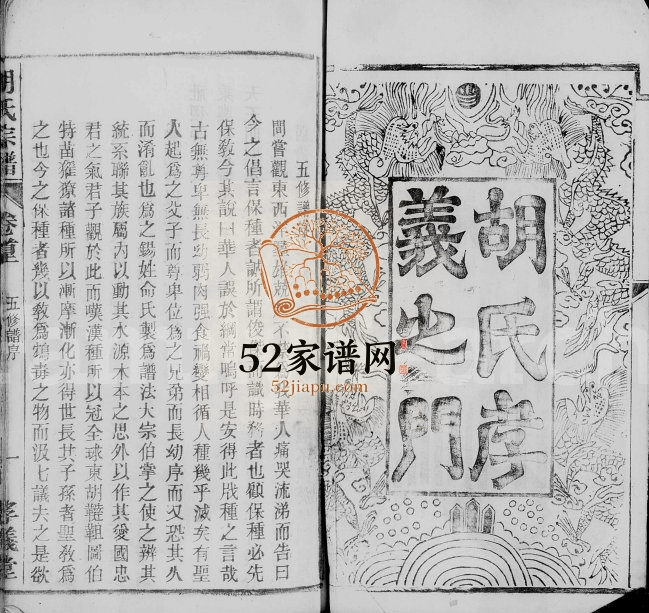 胡氏孝
義之門
五修譜
間嘗觀東西 不 華人痛哭流涕而告曰
今之倡言保種者 所謂俊 識時務者也顧保種必先
保敎今其說曰華人誤於綱常嗚呼是安得此戕種之言哉
古無尊卑無長幼弱肉强食禍變相循人種幾乎滅矣有聖
人起爲之父子而尊卑位爲之兄弟而長幼序而又恐其久
而淆亂也爲之錫姓命氏製爲譜法大宗伯掌之使之辨其
統系聯其族屬內以動其水源木本之思外以作其愛國忠
君之氣君子觀於此而嘆漢種所以冠全球東胡韃靼圖伯
特苗猺獠諸種所以漸摩漸化亦得世長其子孫者聖敎爲
之也今之保種者幾以敎爲鴆毒之物而汲七議去之是欲
胡氏宗譜
卷首
五修譜序
一
孝義堂
52家谱网
52jiapu.com